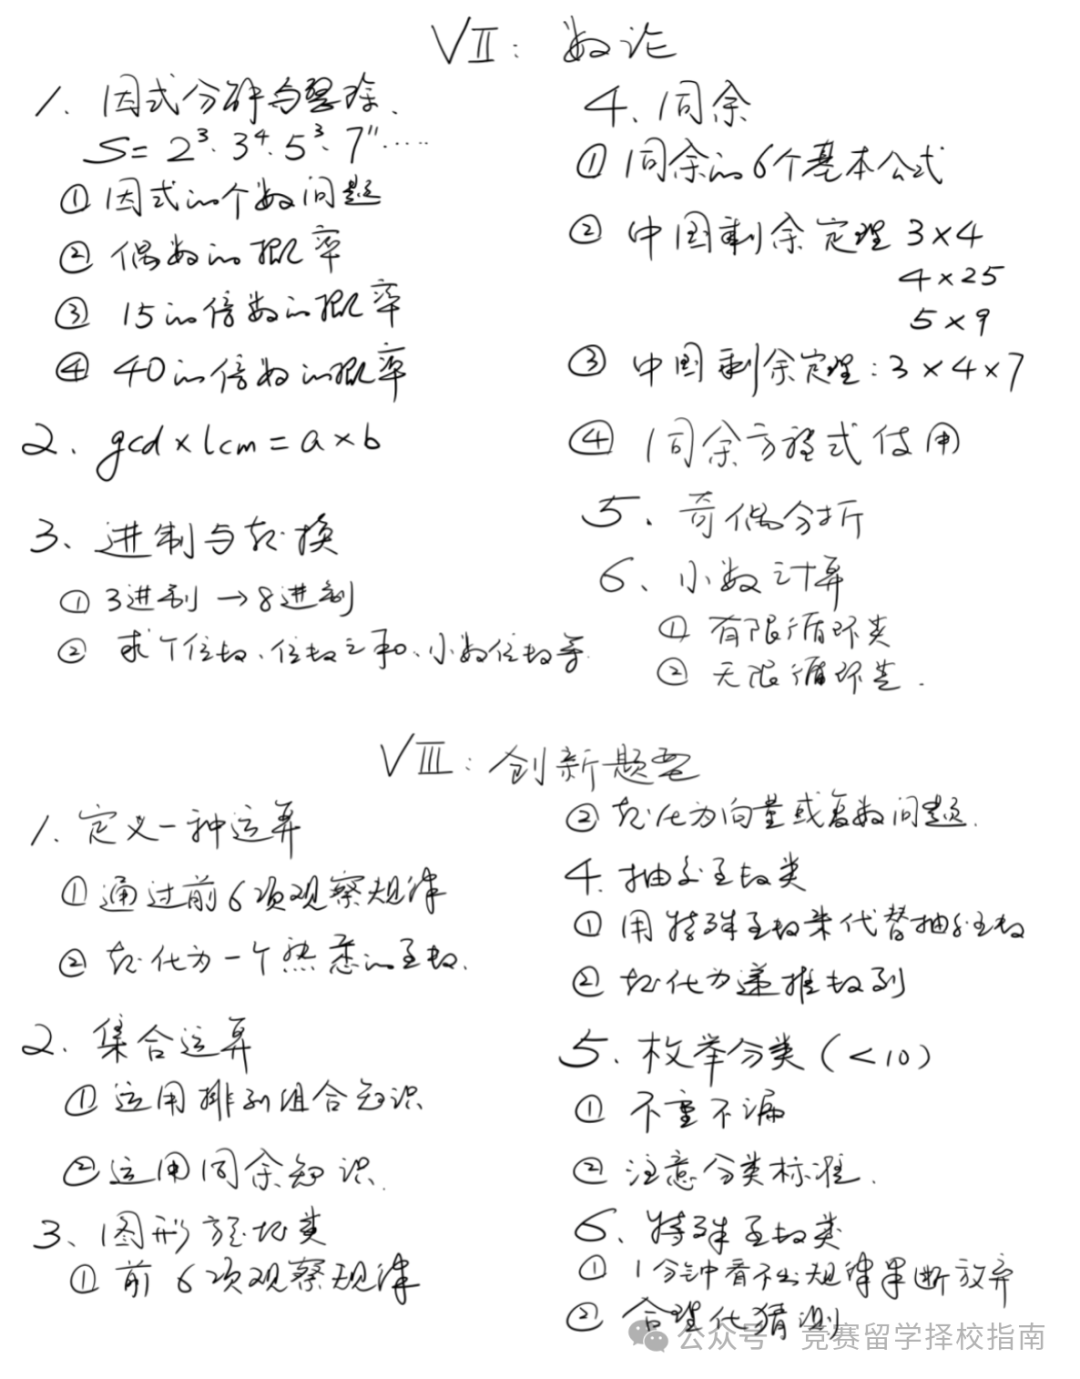 VII：数论
1. 因式分解与整除.
S = 2³·3⁴·5³·7¹¹·····
① 因式的个数问题
② 偶数的概率
③ 15的倍数的概率
④ 40的倍数的概率
2. gcd×lcm=a×b
3、进制与转换
① 3进制→8进制
② 求个位数、位数之和、小数位数等
4. 同余
① 同余的6个基本公式
② 中国剩余定理 3×4
4×25
5×9
③ 中国剩余定理:3×4×7
④ 同余方程式使用
5、奇偶分析
6、小数计算
① 有限循环类
② 无限循环类.
VIII：创新题型
1. 定义一种运算
① 通过前6项观察规律
② 转化为一个熟悉的函数.
2. 集合运算
① 运用排列组合知识
② 运用同余知识.
3、图形旋转类
① 前6项观察规律
② 转化为向量或复数问题.
4. 抽象函数类
① 用特殊函数来代替抽象函数
② 转化为递推数列
5. 枚举分类(<10)
① 不重不漏
② 注意分类标准.
6、特殊函数类
① 1分钟看不出规律果断放弃
② 合理化猜测
公众号·竞赛留学择校指南